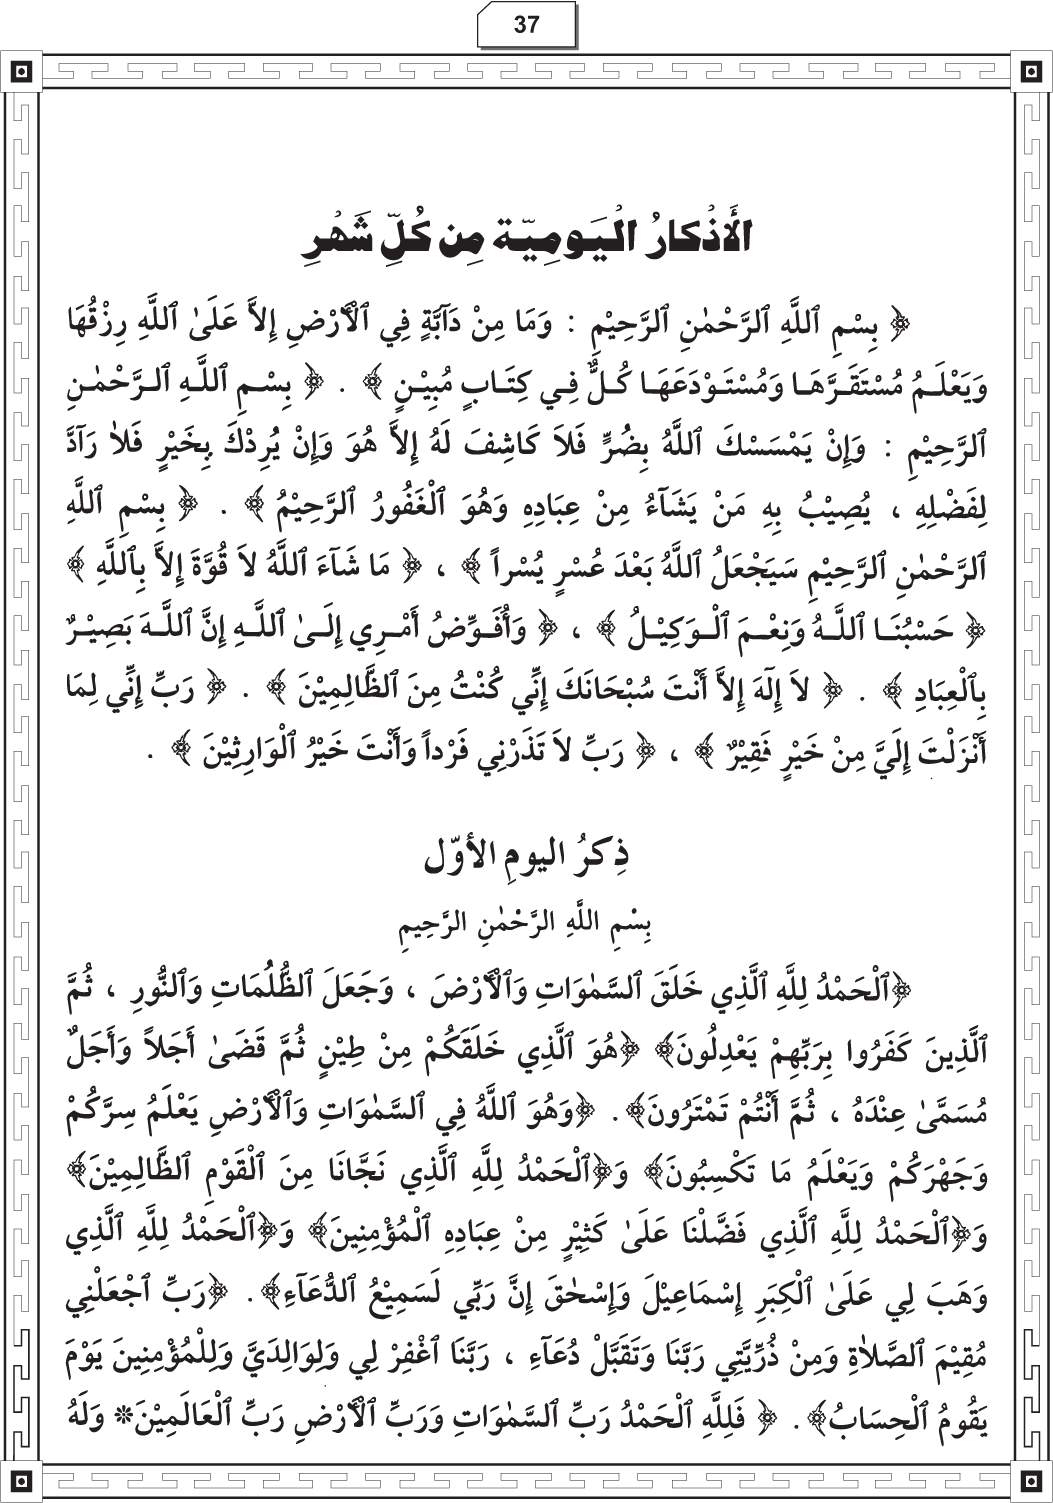 37
الأَذْكارُ الْيَومِيّة مِن كُلِّ شَهْرِ
﴿ بِسْمِ ٱللَّهِ ٱلرَّحْمٰنِ ٱلرَّحِيْمِ : وَمَا مِنْ دَآبَّةٍ فِي ٱلْأَرْضِ إِلاَّ عَلَىٰ ٱللَّهِ رِزْقُهَا
وَيَعْلَمُ مُسْتَقَرَّهَا وَمُسْتَوْدَعَهَا كُلٌّ فِي كِتَابٍ مُبِيْنٍ ﴾ . ﴿ بِسْمِ ٱللَّهِ ٱلرَّحْمٰنِ
ٱلرَّحِيْمِ : وَإِنْ يَمْسَسْكَ ٱللَّهُ بِضُرٍّ فَلاَ كَاشِفَ لَهُ إِلاَّ هُوَ وَإِنْ يُرِدْكَ بِخَيْرٍ فَلاٰ رَآدَّ
لِفَضْلِهِ ، يُصِيْبُ بِهِ مَنْ يَشَآءُ مِنْ عِبَادِهِ وَهُوَ ٱلْغَفُورُ ٱلرَّحِيْمُ ﴾ . ﴿ بِسْمِ ٱللَّهِ
ٱلرَّحْمٰنِ ٱلرَّحِيْمِ سَيَجْعَلُ ٱللَّهُ بَعْدَ عُسْرٍ يُسْراً ﴾ ، ﴿ مَا شَآءَ ٱللَّهُ لاَ قُوَّةَ إِلاَّ بِٱللَّهِ ﴾
﴿ حَسْبُنَا ٱللَّهُ وَنِعْمَ ٱلْوَكِيْلُ ﴾ ، ﴿ وَأُفَوِّضُ أَمْرِي إِلَىٰ ٱللَّهِ إِنَّ ٱللَّهَ بَصِيْرٌ
بِٱلْعِبَادِ ﴾ . ﴿ لاَ إِلَهَ إِلاَّ أَنْتَ سُبْحَانَكَ إِنِّي كُنْتُ مِنَ ٱلظَّالِمِيْنَ ﴾ . ﴿ رَبِّ إِنِّي لِمَا
أَنْزَلْتَ إِلَيَّ مِنْ خَيْرٍ فَقِيْرٌ ﴾ ، ﴿ رَبِّ لاَ تَذَرْنِي فَرْداً وَأَنْتَ خَيْرُ ٱلْوَارِثِيْنَ ﴾ .
ذِكرُ اليومِ الأوّل
بِسْمِ اللَّهِ الرَّحْمٰنِ الرَّحِيمِ
﴿ٱلْحَمْدُ لِلَّهِ ٱلَّذِي خَلَقَ ٱلسَّمٰوَاتِ وَٱلْأَرْضَ ، وَجَعَلَ ٱلظُّلُمَاتِ وَٱلنُّورِ ، ثُمَّ
ٱلَّذِينَ كَفَرُوا بِرَبِّهِمْ يَعْدِلُونَ﴾ ﴿هُوَ ٱلَّذِي خَلَقَكُمْ مِنْ طِيْنٍ ثُمَّ قَضَىٰ أَجَلاً وَأَجَلٌ
مُسَمَّىٰ عِنْدَهُ ، ثُمَّ أَنْتُمْ تَمْتَرُونَ﴾. ﴿وَهُوَ ٱللَّهُ فِي ٱلسَّمٰوَاتِ وَٱلْأَرْضِ يَعْلَمُ سِرَّكُمْ
وَجَهْرَكُمْ وَيَعْلَمُ مَا تَكْسِبُونَ﴾ وَ﴿ٱلْحَمْدُ لِلَّهِ ٱلَّذِي نَجَّانَا مِنَ ٱلْقَوْمِ ٱلظَّالِمِيْنَ﴾
وَ﴿ٱلْحَمْدُ لِلَّهِ ٱلَّذِي فَضَّلْنَا عَلَىٰ كَثِيْرٍ مِنْ عِبَادِهِ ٱلْمُؤْمِنِينَ﴾ وَ﴿ٱلْحَمْدُ لِلَّهِ ٱلَّذِي
وَهَبَ لِي عَلَىٰ ٱلْكِبَرِ إِسْمَاعِيْلَ وَإِسْحٰقَ إِنَّ رَبِّي لَسَمِيْعُ ٱلدُّعَآءِ﴾. ﴿رَبِّ ٱجْعَلْنِي
مُقِيْمَ ٱلصَّلاٰةِ وَمِنْ ذُرِّيَّتِي رَبَّنَا وَتَقَبَّلْ دُعَآءِ ، رَبَّنَا ٱغْفِرْ لِي وَلِوَالِدَيَّ وَلِلْمُؤْمِنِينَ يَوْمَ
يَقُومُ ٱلْحِسَابُ﴾. ﴿ فَلِلَّهِ ٱلْحَمْدُ رَبِّ ٱلسَّمٰوَاتِ وَرَبِّ ٱلْأَرْضِ رَبِّ ٱلْعَالَمِيْنَ* وَلَهُ